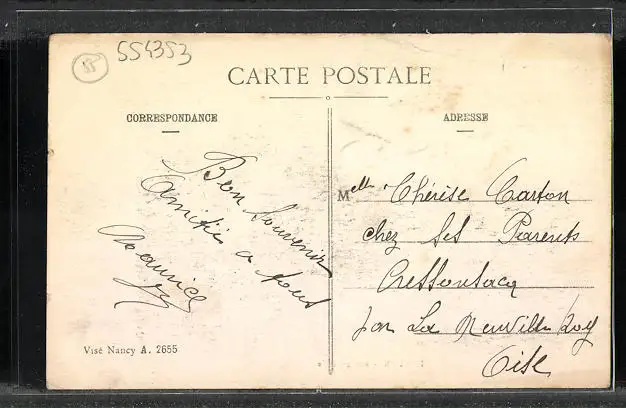 55
554353
CARTE POSTALE
CORRESPONDANCE
Bon Souvenir
Amitié a tous
Maurice
Visé Nancy A. 2655
ADRESSE
Melle Thérèse Carton
chez Ses Parents
Cressonsacq
par La Neuville Roy
Oise